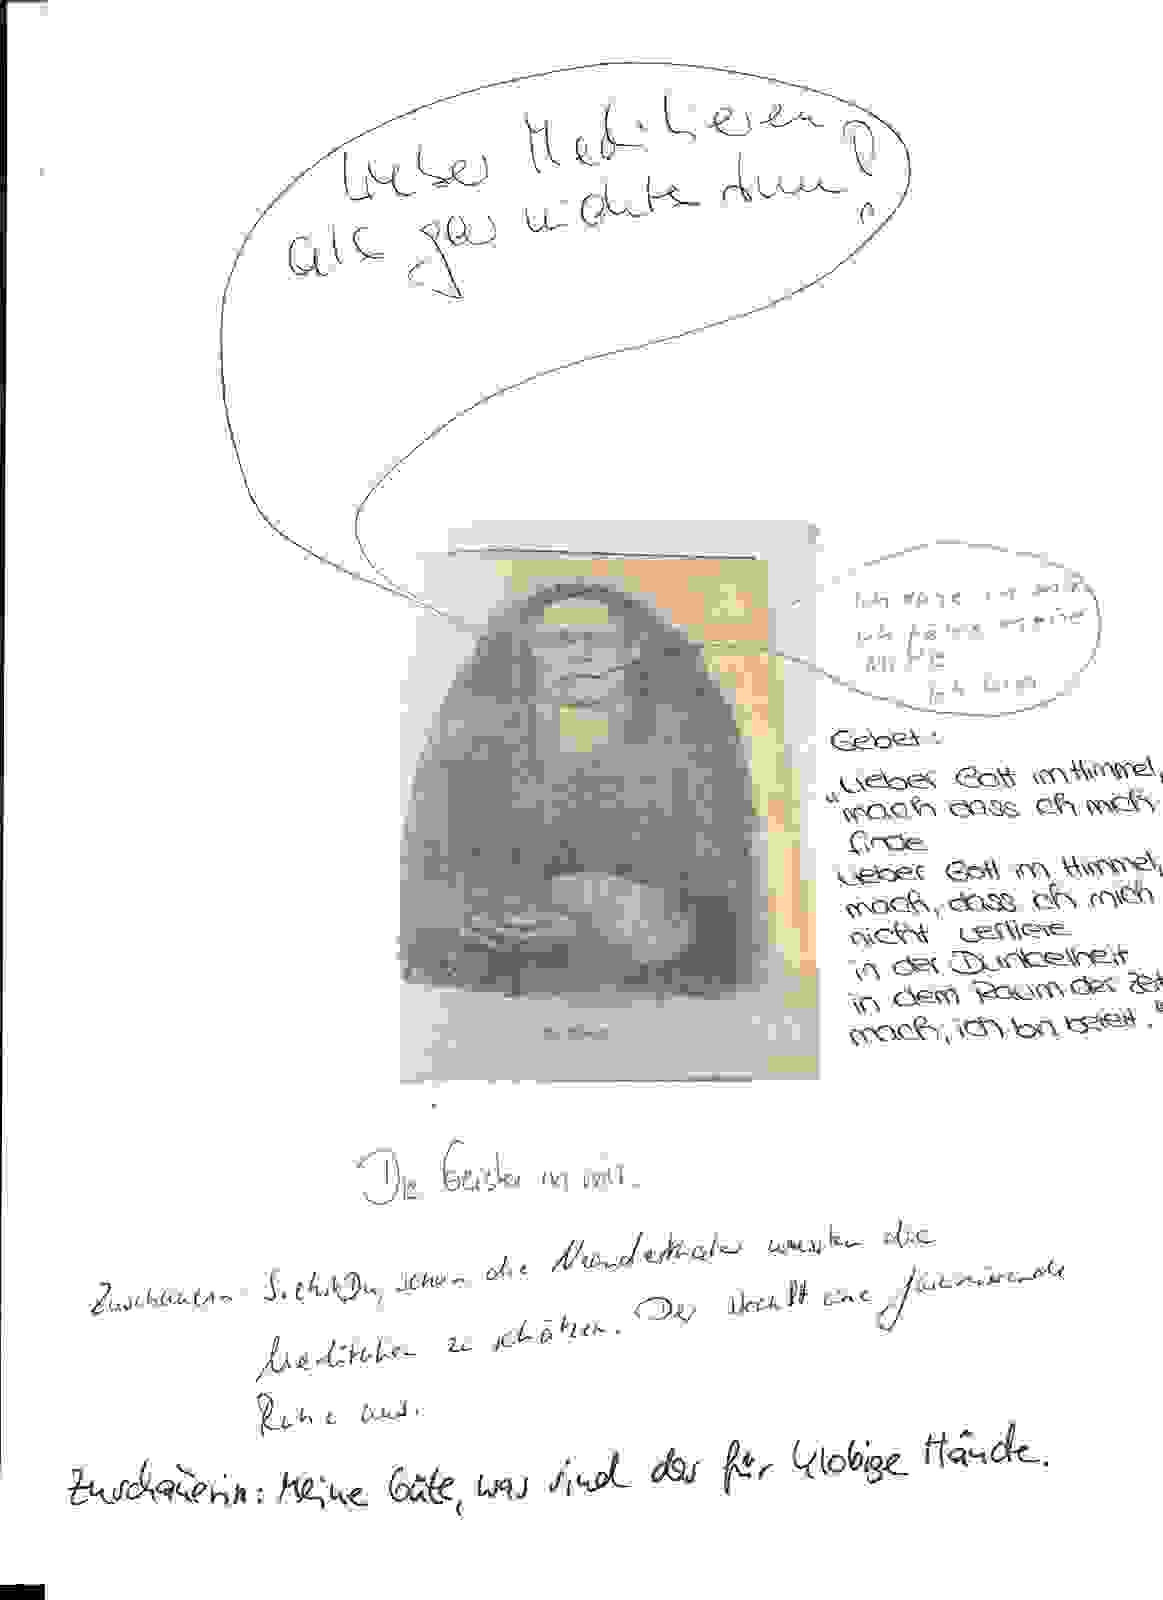 Lieber Meditieren
als gar nichts tun!
Ich ruhe in mir
Ich fühle meine
Mitte
Ich bin
Gebet:
"Lieber Gott im Himmel,
mach dass ich mich
finde
Lieber Gott im Himmel,
mach, dass ich mich
nicht verliere
in der Dunkelheit
in dem Raum der Zeit
mach, ich bin bereit."
Die Geister in mir.
Zuschauerin: Siehst Du, schon die Neandertaler wussten die
Meditation zu schätzen. Der strahlt eine faszinierende
Ruhe aus.
Zuschauerin: Meine Güte, was sind das für klobige Hände.